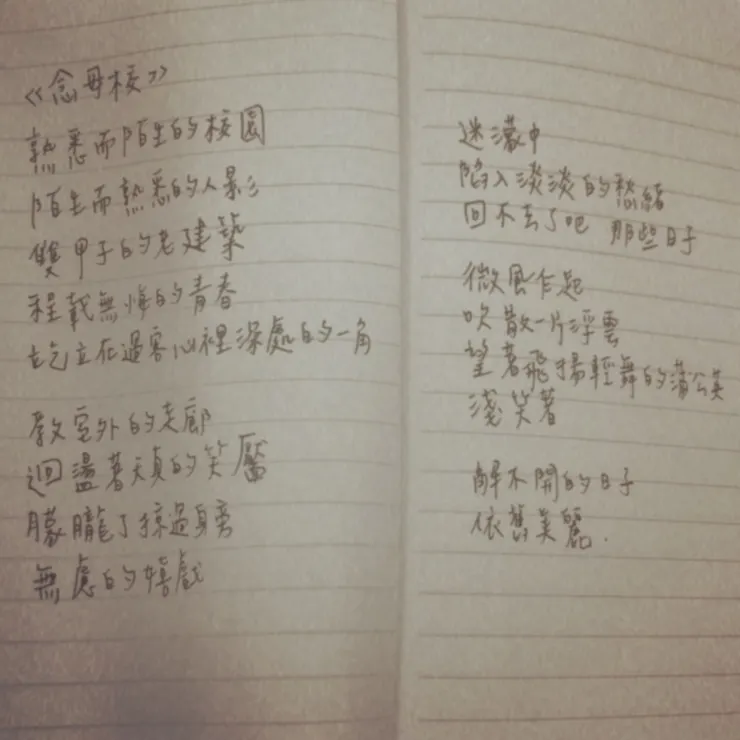 《念母校》
熟悉而陌生的校園
陌生而熟悉的人影
雙甲子的老建築
程載無悔的青春
屹立在過客心裡深處的一角
教室外的走廊
迴盪著天真的笑靨
朦朧了掠過身旁
無慮的嬉戲
迷濛中
陷入淡淡的愁緒
回不去了吧 那些日子
微風乍起
吹散一片浮雲
望著飛揚輕舞的蒲公英
淺笑著
解不開的日子
依舊美麗.